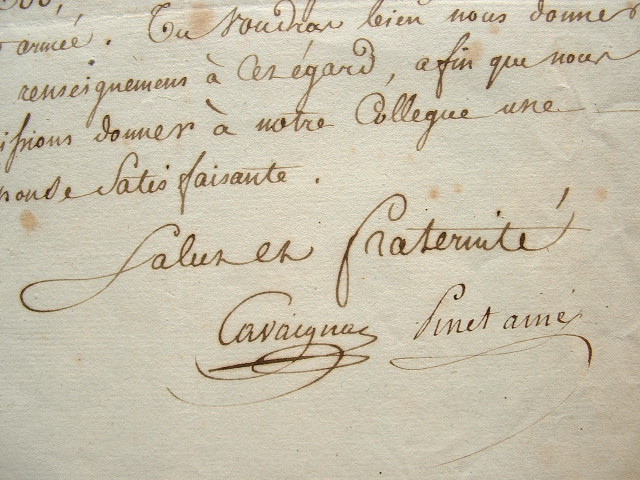 armée. Tu voudras bien nous donner
renseignemens à cet égard, afin que nous
issions donner à notre Collegue une
ponse Satisfaisante.
Salut et fraternité
Cavaignac Pinet ainé